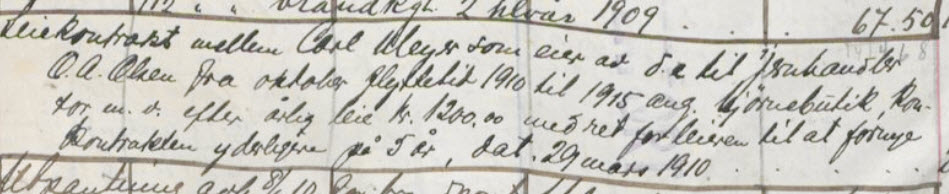 112 " " brandkgl. 2 halvår 1909 . . . 67.50
Leiekontrakt mellem Carl Meyer som eier av d.e til Jernhandler
O. A. Olsen fra oktober flyttetid 1910 til 1915 ang. hjørnebutik, kon-
tor m. v. efter årlig leie kr. 1200.00 med ret for leieren til at fornye
kontrakten yderligere på 5 år, dat. 29 mars 1910. . . .
Utpantning 10